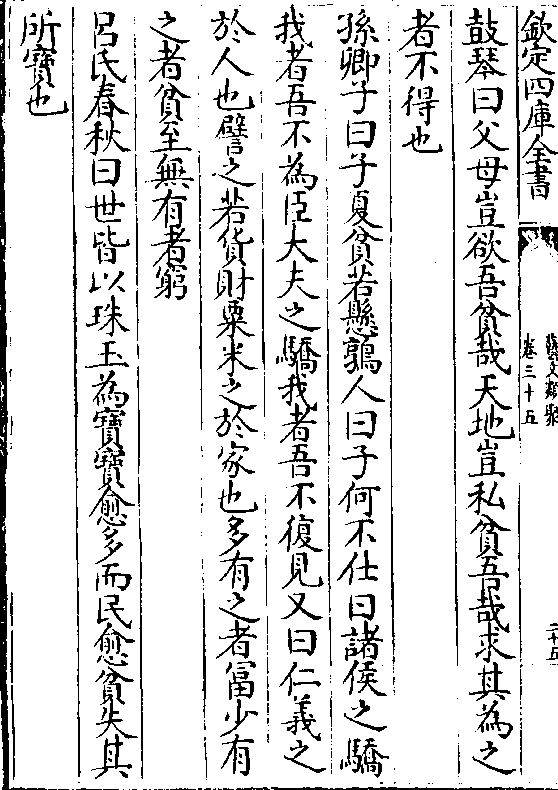 欽定四庫全書
藝文類聚
卷三十五
二十五
鼓琴曰父母豈欲吾貧哉天地豈私貧吾哉求其為之
者不得也
孫卿子曰子夏貧若懸鶉人曰子何不仕曰諸侯之驕
我者吾不為臣大夫之驕我者吾不復見又曰仁義之
於人也譬之若貨財粟米之於家也多有之者富少有
之者貧至無有者窮
呂氏春秋曰世皆以珠玉為寶寶愈多而民愈貧失其
所寶也